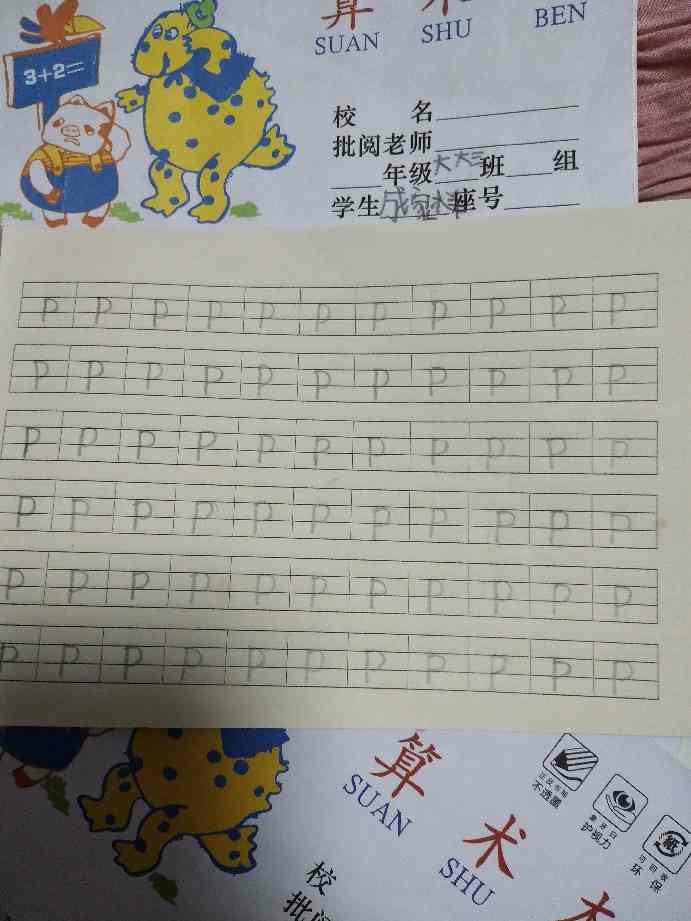 算 术
SUAN SHU BEN
3+2=
校 名
批阅老师
年级大大三班 组
学生 座号
P P P P P P P P P P P
P P P P P P P P P P P
P P P P P P P P P P P
P P P P P P P P P P P
P P P P P P P P P P P
P P P P P P P P P P P
算 术 本
SUAN SHU
不透墨
护视力
环 保
校
批阅